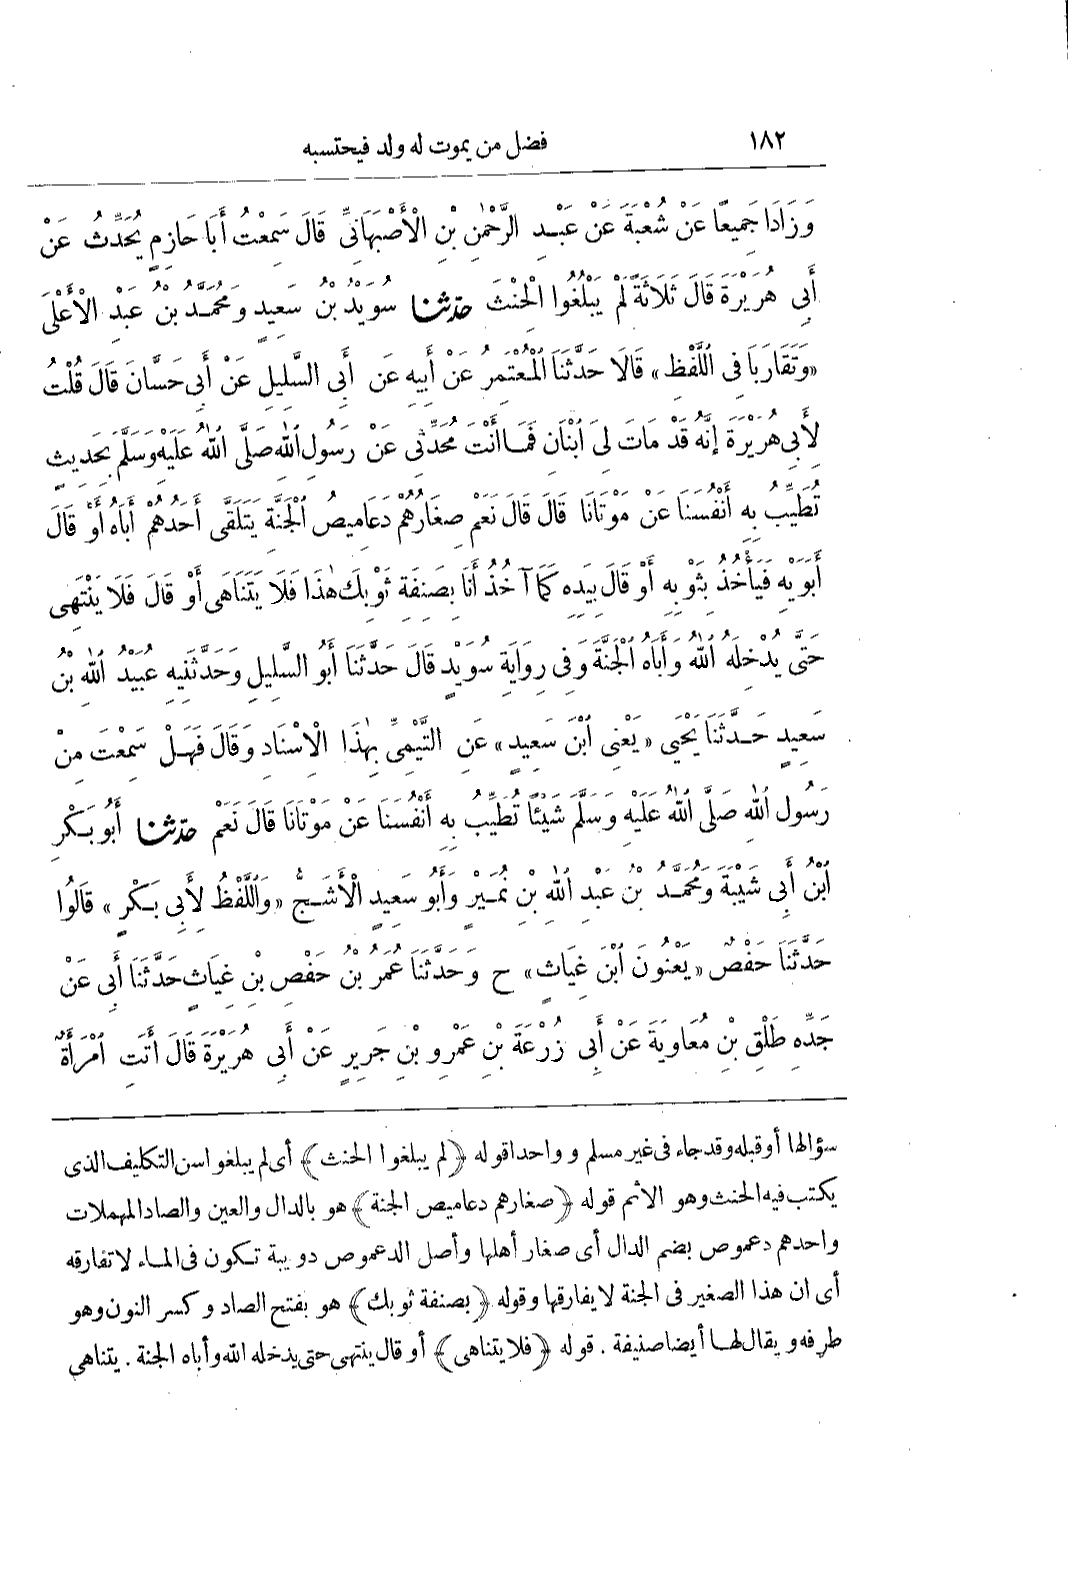 ١٨٢ فضل من يموت له ولد فيحتسبه
وَزَادَا جَمِيعًا عَنْ شُعْبَةَ عَنْ عَبْدِ الرَّحْمٰنِ بْنِ الْأَصْبَهَانِىِّ قَالَ سَمِعْتُ أَبَا حَازِمٍ يُحَدِّثُ عَنْ
أَبِى هُرَيْرَةَ قَالَ ثَلَاثَةً لَمْ يَبْلُغُوا الْحِنْثَ حدّثنا سُوَيْدُ بْنُ سَعِيدٍ وَمُحَمَّدُ بْنُ عَبْدِ الْأَعْلَى
«وَتَقَارَبَا فِى اللَّفْظِ» قَالَا حَدَّثَنَا الْمُعْتَمِرُ عَنْ أَبِيهِ عَنْ أَبِى السَّلِيلِ عَنْ أَبِى حَسَّانَ قَالَ قُلْتُ
لِأَبِى هُرَيْرَةَ إِنَّهُ قَدْ مَاتَ لِىَ ابْنَانِ فَمَا أَنْتَ مُحَدِّثِى عَنْ رَسُولِ اللّٰهِ صَلَّى اللّٰهُ عَلَيْهِ وَسَلَّمَ بِحَدِيثٍ
تُطَيِّبُ بِهِ أَنْفُسَنَا عَنْ مَوْتَانَا قَالَ قَالَ نَعَمْ صِغَارُهُمْ دَعَامِيصُ الْجَنَّةِ يَتَلَقَّى أَحَدُهُمْ أَبَاهُ أَوْ قَالَ
أَبَوَيْهِ فَيَأْخُذُ بِثَوْبِهِ أَوْ قَالَ بِيَدِهِ كَمَا آخُذُ أَنَا بِصَنِفَةِ ثَوْبِكَ هٰذَا فَلَا يَتَنَاهَى أَوْ قَالَ فَلَا يَنْتَهِى
حَتَّى يُدْخِلَهُ اللّٰهُ وَأَبَاهُ الْجَنَّةَ وَفِى رِوَايَةِ سُوَيْدٍ قَالَ حَدَّثَنَا أَبُو السَّلِيلِ وَحَدَّثَنِيهِ عُبَيْدُ اللّٰهِ بْنُ
سَعِيدٍ حَدَّثَنَا يَحْيَى «يَعْنِى ابْنَ سَعِيدٍ» عَنِ التَّيْمِىِّ بِهٰذَا الْإِسْنَادِ وَقَالَ فَهَلْ سَمِعْتَ مِنْ
رَسُولِ اللّٰهِ صَلَّى اللّٰهُ عَلَيْهِ وَسَلَّمَ شَيْئًا تُطَيِّبُ بِهِ أَنْفُسَنَا عَنْ مَوْتَانَا قَالَ نَعَمْ حدّثنا أَبُو بَكْرِ
ابْنُ أَبِى شَيْبَةَ وَمُحَمَّدُ بْنُ عَبْدِ اللّٰهِ بْنِ نُمَيْرٍ وَأَبُو سَعِيدٍ الْأَشَجُّ «وَاللَّفْظُ لِأَبِى بَكْرٍ» قَالُوا
حَدَّثَنَا حَفْصٌ «يَعْنُونَ ابْنَ غِيَاثٍ» ح وَحَدَّثَنَا عُمَرُ بْنُ حَفْصِ بْنِ غِيَاثٍ حَدَّثَنَا أَبِى عَنْ
جَدِّهِ طَلْقِ بْنِ مُعَاوِيَةَ عَنْ أَبِى زُرْعَةَ بْنِ عَمْرِو بْنِ جَرِيرٍ عَنْ أَبِى هُرَيْرَةَ قَالَ أَتَتِ امْرَأَةٌ
سؤالها أوقبله وقد جاء فى غير مسلم و واحدا قوله ﴿لم يبلغوا الحنث﴾ أى لم يبلغوا سن التكليف الذى
يكتب فيه الحنث وهو الاثم قوله ﴿صغارهم دعاميص الجنة﴾ هو بالدال والعين والصاد المهملات
واحدهم دعموص بضم الدال أى صغار أهلها وأصل الدعموص دويبة تكون فى الماء لا تفارقه
أى ان هذا الصغير فى الجنة لا يفارقها وقوله ﴿بصنفة ثوبك﴾ هو بفتح الصاد وكسر النون وهو
طرفه ويقال لها أيضا صنيفة . قوله ﴿فلا يتناهى﴾ أو قال ينتهى حتى يدخله الله وأباه الجنة . يتناهى